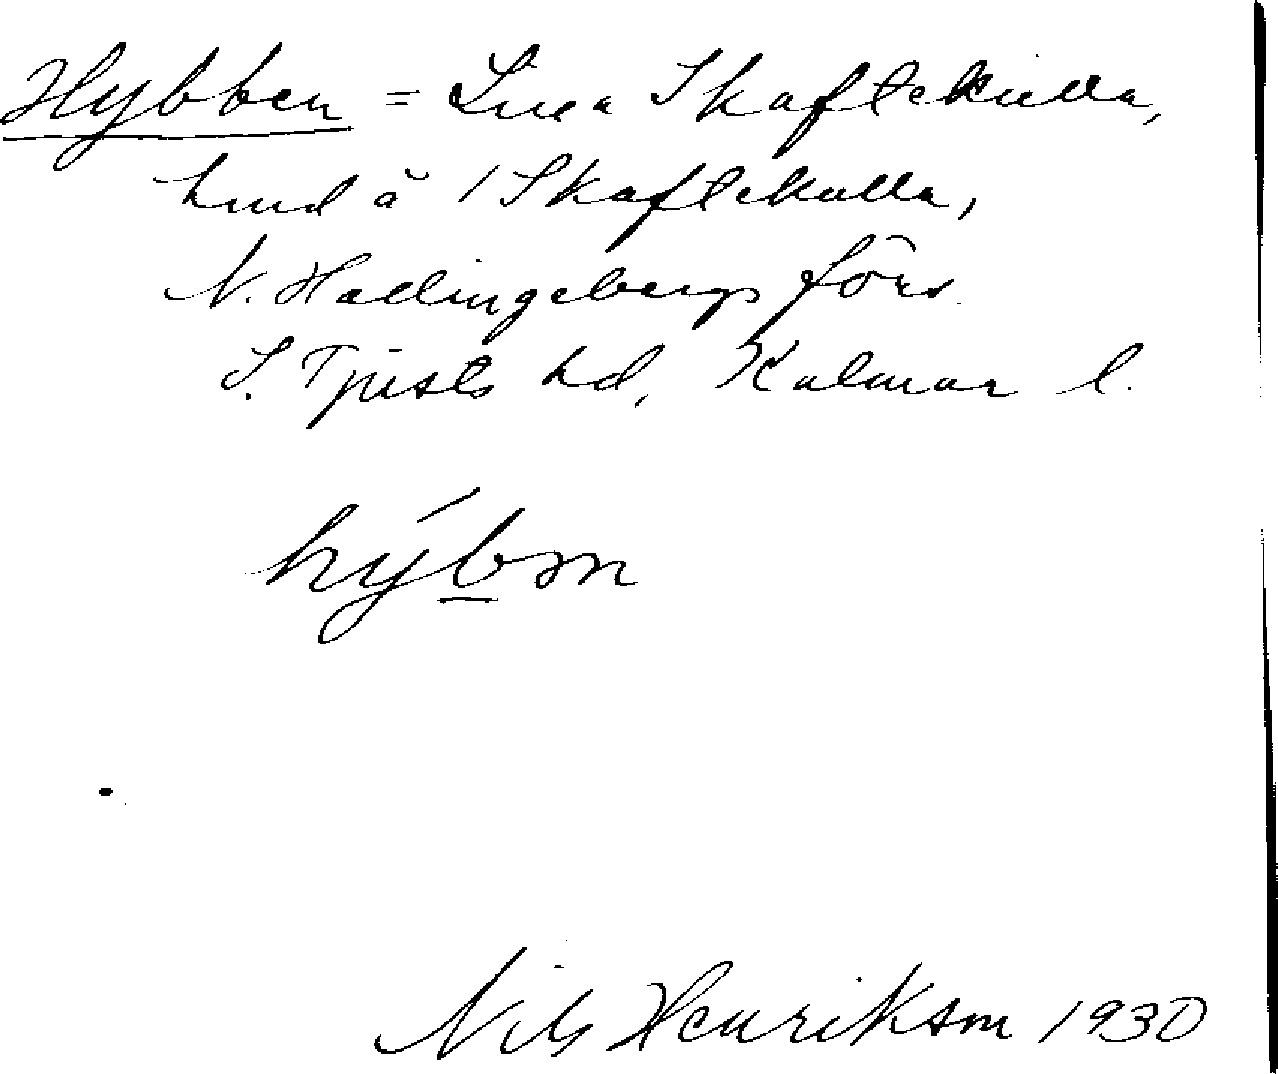 Hybben = Lilla Skaftekulla,
hmd å 1 Skaftekulla,
N. Hallingebergs förs.
S. Tjusts hd, Kalmar l.
hýbm
Nils Henrikson 1930